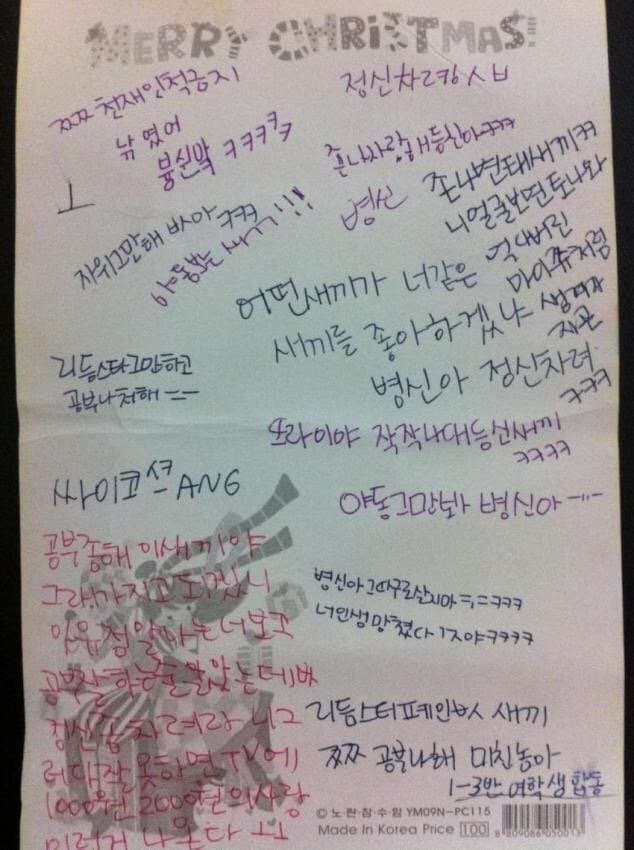 MERRY CHRISTMAS!
쯔쯔 천재인척금지
낚였어
븅신막 ㅋㅋㅋㅋ
정신차려 ㅅㅂ
존나사랑해등신아ㅋㅋㅋ
병신
존나변태새끼ㅋㅋ
니얼굴보면토나와
자위그만해 ㅋㅋㅋ
야동보는 새끼!!!
어떤새끼가 너같은
새끼를 좋아하겠냐
병신아 정신차려
마이쮸처럼
생겨가
지곤
ㅋㅋㅋ
리듬스타그만하고
공부나쳐해 ㅡㅡ
또라이야 작작나대등신새끼
ㅋㅋㅋㅋ
싸이코 ANG
야동그만봐 병신아 ㅡㅡ
공부좀해 이새끼야
그래가지고
너보고
공부잘하는줄알았는데
정신좀차려라 니그
러다잘못하면TV에
1000원 2000원의사랑
이런거 나온다 ㅜㅜ
병신아 그따구로살지마 ㅋㅋㅋ
너인생망쳤다 ㅋㅋㅋㅋ
리듬스타페인 새끼
쯔쯔 공부나해 미친놈아
1-3반 여학생합동
© 노·란·잠·수·함 YM09N-PC115
Made in Korea Price 100
8 809086 050013